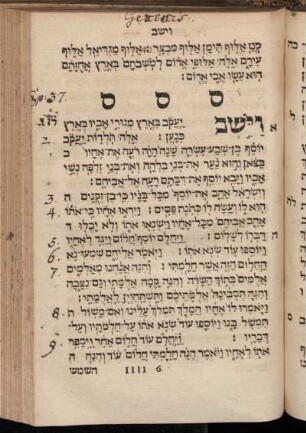 Genesis.
וישב
קנז אלוף תימן אלוף מבצר: אלוף מגדיאל אלוף
עירם אלה אלופי אדום למשבתם בארץ אחזתם
הוא עשו אבי אדום:
ס ס ס
37.
וישב יעקב בארץ מגורי אביו בארץ א
2. כנען: אלה תלדות יעקב
יוסף בן שבע עשרה שנה היה רעה את אחיו
בצאן והוא נער את בני בלהה ואת בני זלפה נשי
אביו ויבא יוסף את דבתם רעה אל אביהם:
3. וישראל אהב את יוסף מכל בניו כי בן זקנים
4. הוא לו ועשה לו כתנת פסים: ויראו אחיו כי אתו
אהב אביהם מכל אחיו וישנאו אתו ולא יכלו
5. דברו לשלום: ויחלם יוסף חלום ויגד לאחיו ה
6. ויוספו עוד שנא אתו: ויאמר אליהם שמעו נא
7. החלום הזה אשר חלמתי: והנה אנחנו מאלמים
אלמים בתוך השדה והנה קמה אלמתי וגם נצבה
והנה תסבינה אלמתיכם ותשתחוין לאלמתי:
8. ויאמרו לו אחיו המלך תמלך עלינו ואם משול
תמשל בנו ויוספו עוד שנא אתו על חלמתיו ועל
9. דבריו: ויחלם עוד חלום אחר ויספר
אתו לאחיו ויאמר הנה חלמתי חלום עוד והנה
IIII 6 השמש